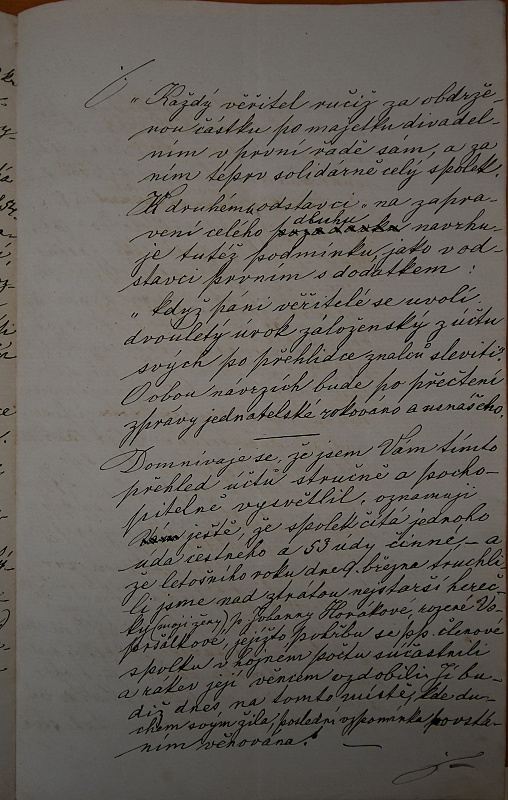 „Každý věřitel ručiž za obdrže-
nou částku po majetku divadel-
ním v první řadě sam, a za
ním teprv solidárně celý spolek.
K druhému odstavci „na zapra-
vení celého dluhu navrhu-
je tutéž podmínku, jako v od-
stavci prvním s dodatkem:
„když páni věřitelé se uvolí
dvouletý úrok záloženský z účtu
svých po přehlídce znalců sleviti“.
O obou návrzích bude po přečtení
zprávy jednatelské rokováno a usnášeno.
Domnívaje se, že jsem Vám tímto
přehled účtů stručně a pocho-
pitelně vysvětlil, oznamuji
ještě, že spolek čítá jednoho
úda čestného a 53 údy činné, – a
že letošního roku dne 9. března truchli-
li jsme nad ztratou nejstarší hereč-
ky (mojí ženy) p. Johanny Horákové, rozené
jejížto pohřbu se pp. členové
spolku v hojném počtu súčastnili
a rakev její věncem vzdobili. Jí bu-
diž dnes, na tomto místě, kde du-
chem svým žila, poslední vzpomínka povstá-
ním věnována.“